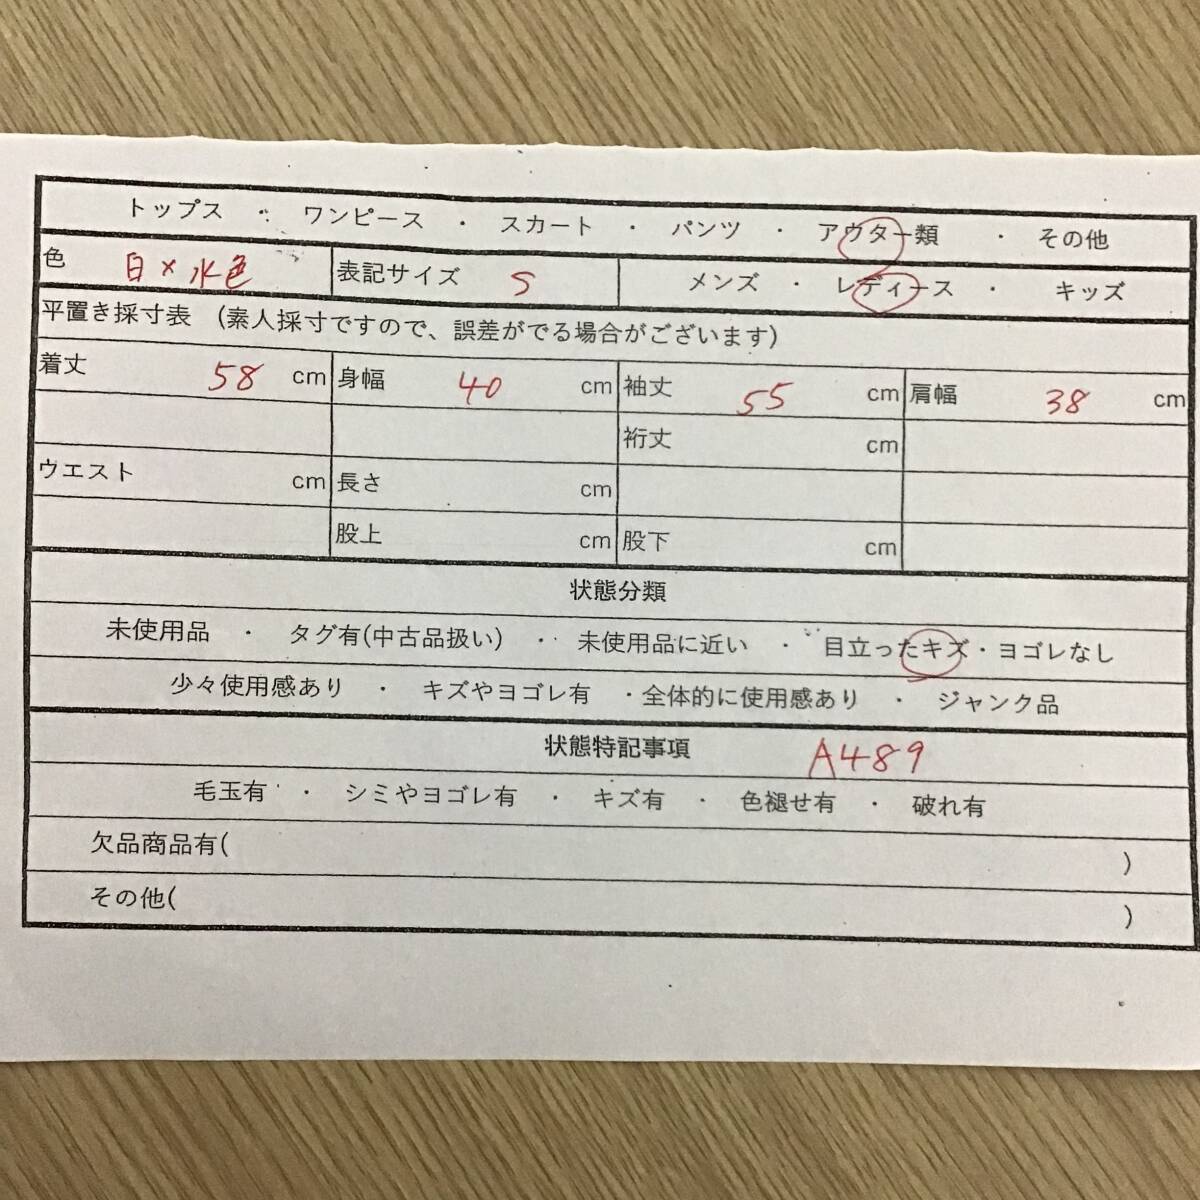 トップス ・ ワンピース ・ スカート ・ パンツ ・ アウター類 ・ その他
色 白×水色 表記サイズ S メンズ ・ レディース ・ キッズ
平置き採寸表 (素人採寸ですので、誤差がでる場合がございます)
着丈 58 cm 身幅 40 cm 袖丈 55 cm 肩幅 38 cm
裄丈 cm
ウエスト cm 長さ cm
股上 cm 股下 cm
状態分類
未使用品 ・ タグ有(中古品扱い) ・ 未使用品に近い ・ 目立ったキズ・ヨゴレなし
少々使用感あり ・ キズやヨゴレ有 ・全体的に使用感あり ・ ジャンク品
状態特記事項 A489
毛玉有 ・ シミやヨゴレ有 ・ キズ有 ・ 色褪せ有 ・ 破れ有
欠品商品有( )
その他( )